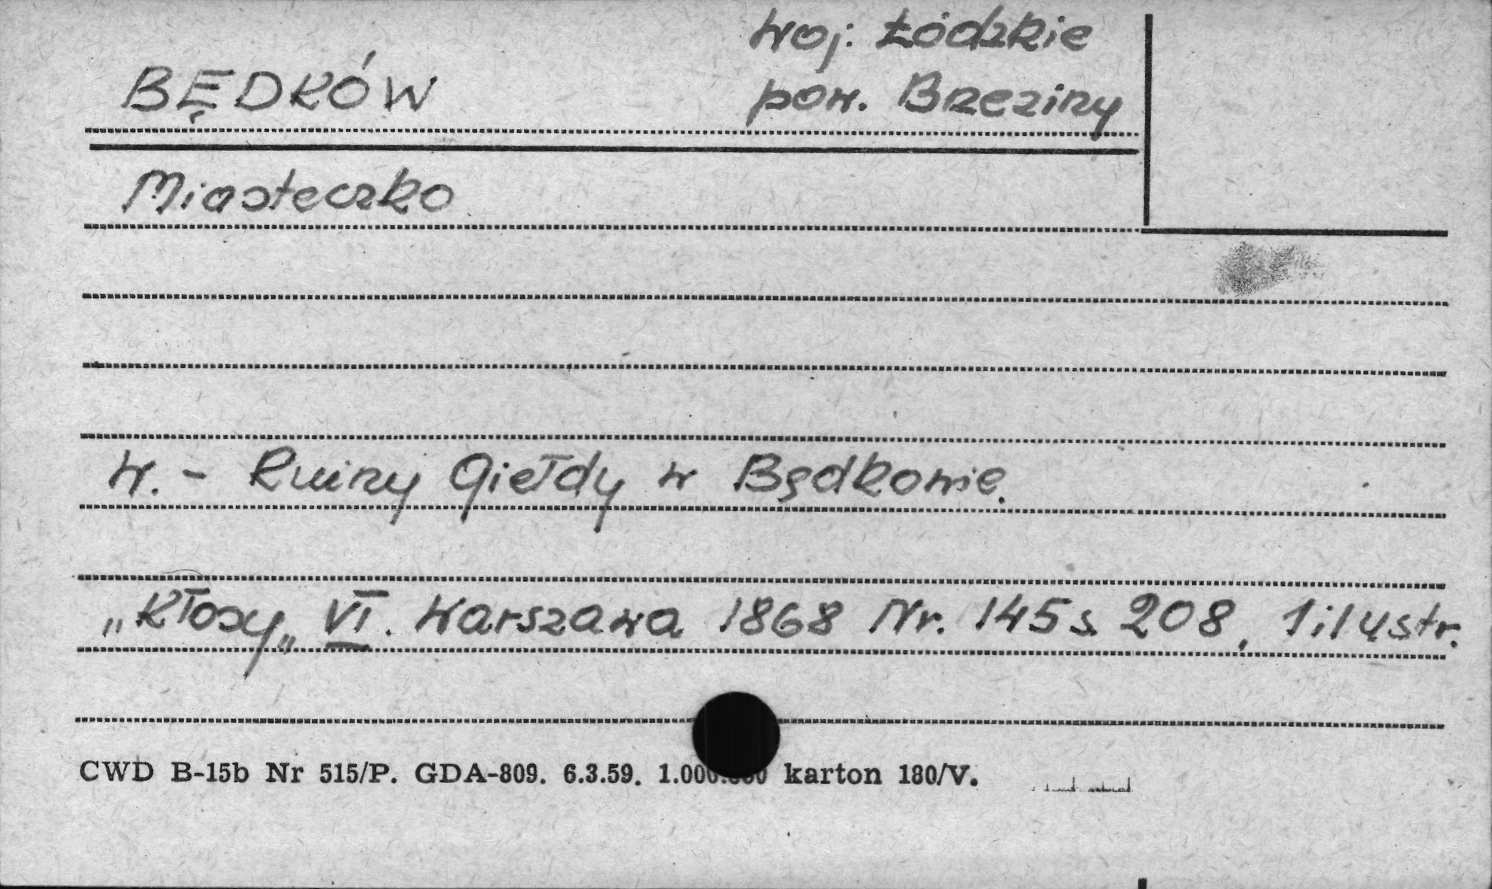 woj. Łódzkie
BĘDKÓW pow. Brzeziny
Miasteczko
W. - Ruiny Giełdy w Będkowie.
„Kłosy„ VI. Warszawa 1868 Nr. 145 s 208, 1 ilustr.
CWD B-15b Nr 515/P. GDA-809. 6.3.59. karton 180/V.